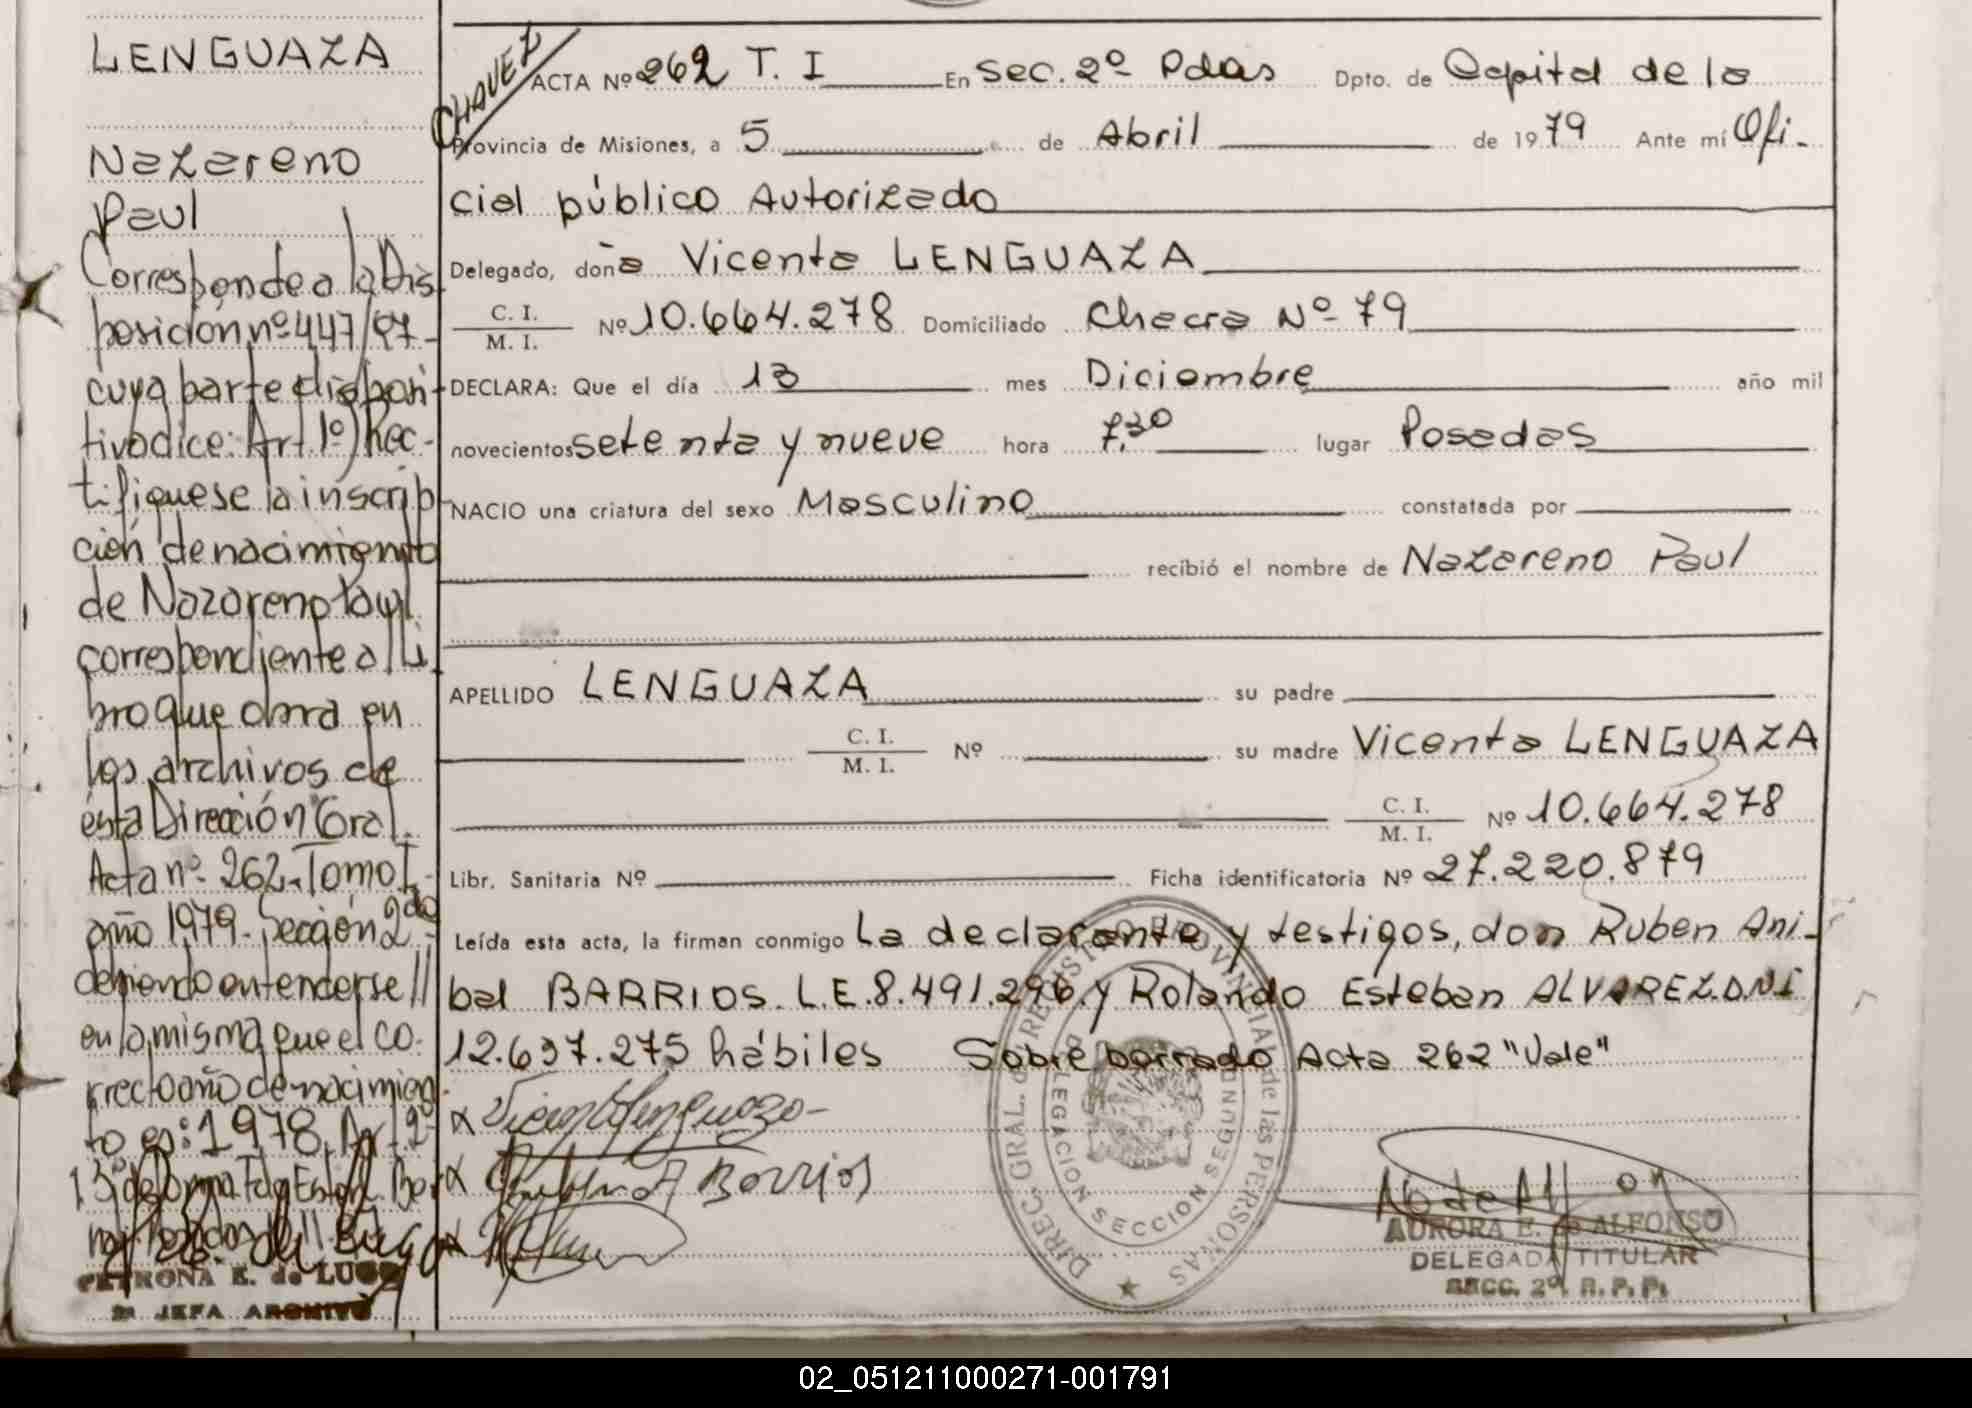 LENGUAZA
Nazareno
Paul
Corresponde a la Dis
posición nº 447/97-
cuya parte disposi-
tiva dice: Art. 1º) Rec-
tifiquese la inscrip
ción de nacimiento
de Nazareno Paul
correspondiente al Li
bro que obra en
los archivos de
ésta Dirección Gral.
Acta nº 262-Tomo I-
año 1979- Sección 2da
debiendo entenderse //
en la misma que el co-
rrecto año de nacimien
to es: 1978. Art. 2º
PETRONA E. de LUGO
JEFA ARCHIVO
CHAVEZ
ACTA Nº 262 T. I En Sec. 2º Pdas Dpto. de Capital de la
Provincia de Misiones, a 5 de Abril de 1979 Ante mí Ofi-
cial público Autorizado
Delegado, doña Vicenta LENGUAZA
C. I.
M. I. Nº 10.664.278 Domiciliado Chacra Nº 79
DECLARA: Que el día 13 mes Diciembre año mil
novecientos setenta y nueve hora 7,30 lugar Posadas
NACIO una criatura del sexo Masculino constatada por
recibió el nombre de Nazareno Paul
APELLIDO LENGUAZA su padre
C. I.
M. I. Nº su madre Vicenta LENGUAZA
C. I.
M. I. Nº 10.664.278
Libr. Sanitaria Nº Ficha identificatoria Nº 27.220.879
Leída esta acta, la firman conmigo La declarante y testigos, don Ruben Ani-
bal BARRIOS. L.E. 8.491.296 y Rolando Esteban ALVAREZ. DNI
12.637.275 hábiles Sobre borrado Acta 262 "Vale"
Vicenta Lenguaza
A Barrios
DIREC. GRAL. de REGISTRO PROVINCIAL de las PERSONAS
DELEGACION SECCION SEGUNDA
AURORA E. de ALFONSO
DELEGADA TITULAR
SECC. 2º R. P. P.
02_051211000271-001791